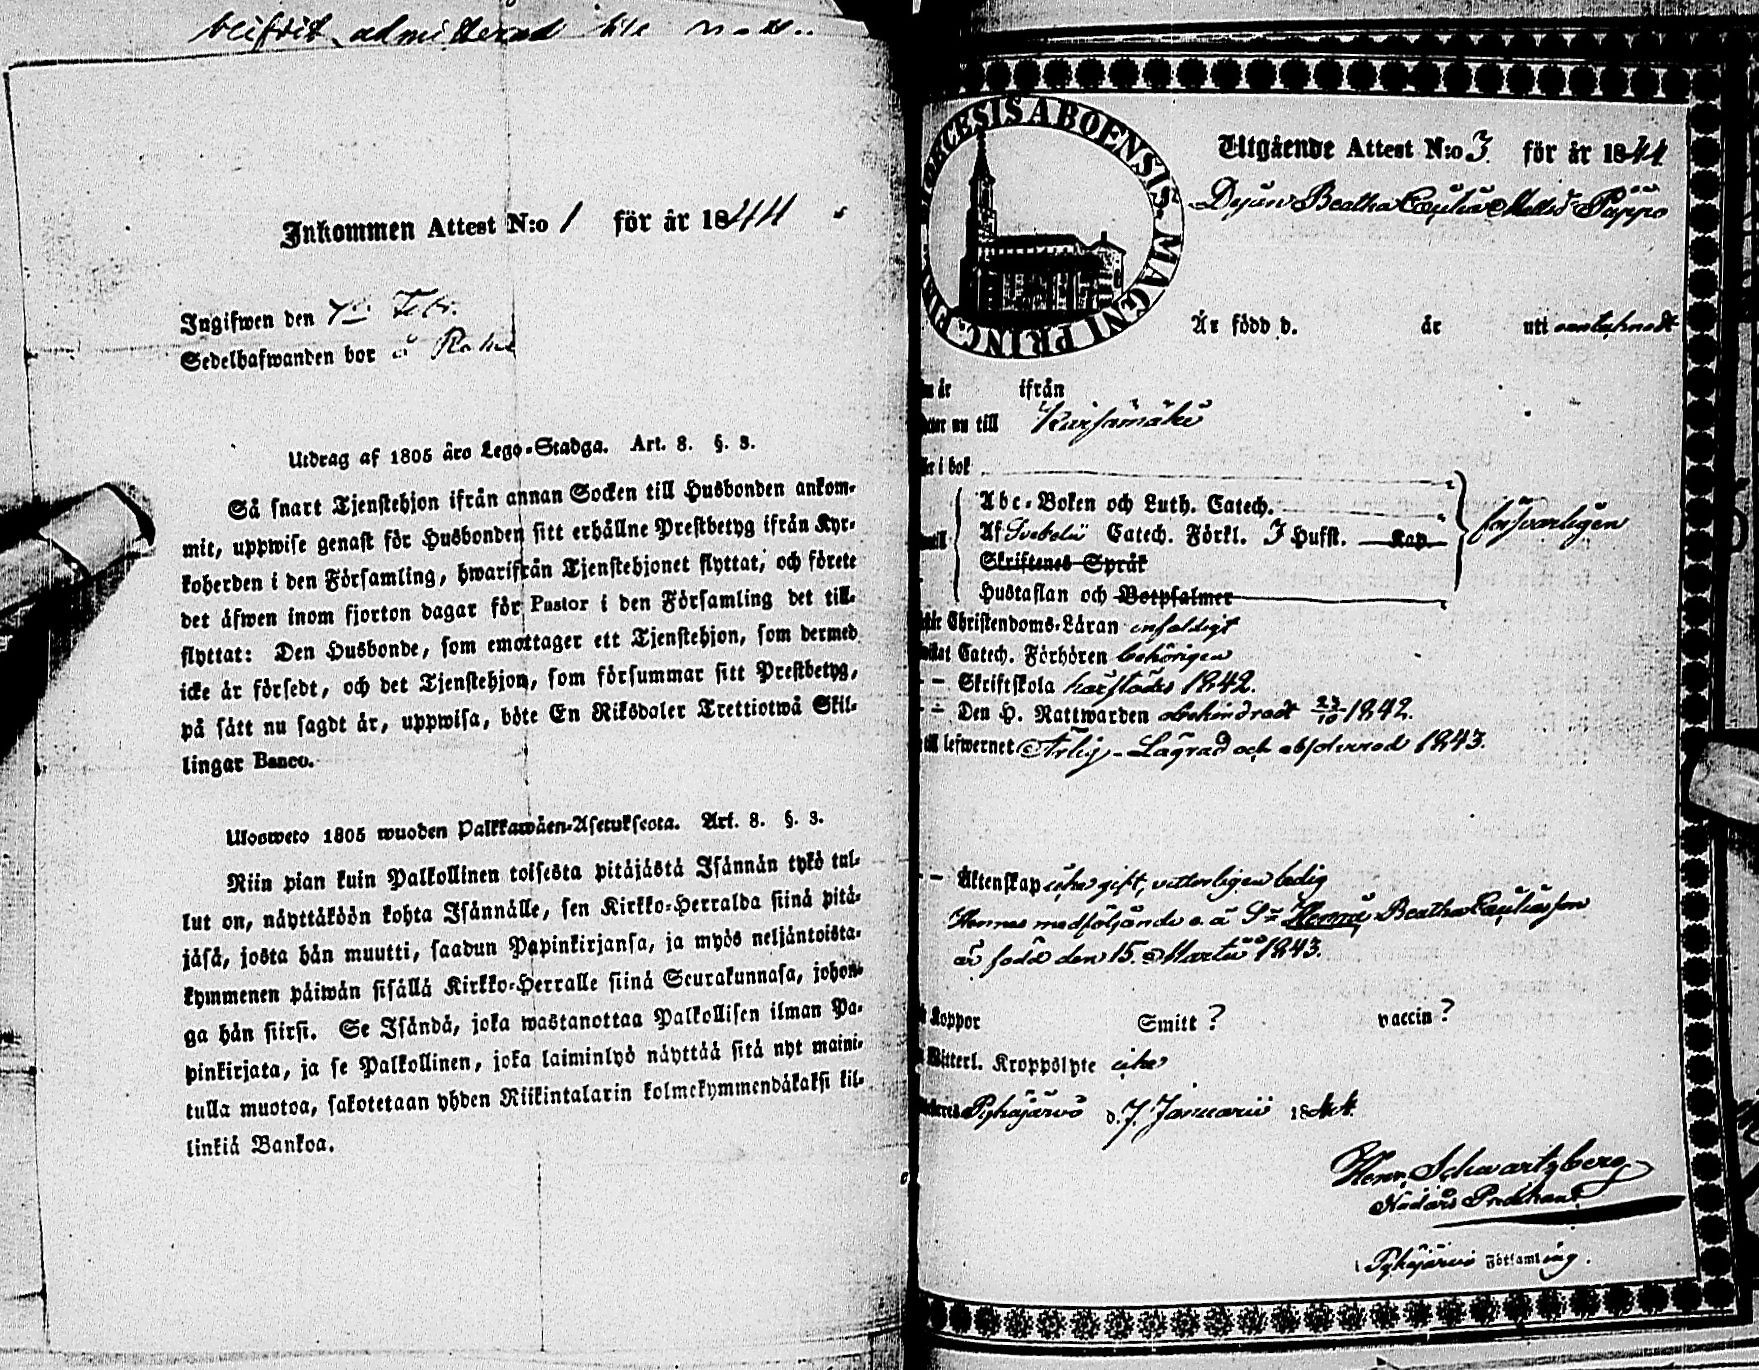 blifvit admitterad till n...
Inkommen Attest N:o 1 för år 1844
Ingifwen den 7de Febr.
Sedelhafwanden bor å
Utdrag af 1805 års Lego-Stadga. Art. 8. §. 3.
Så snart Tjenstehjon ifrån annan Socken till Husbonden ankom-
mit, uppwise genast för Husbonden sitt erhållne Prestbetyg ifrån Kyr-
koherden i den Församling, hwarifrån Tjenstehjonet flyttat, och förete
det äfwen inom fjorton dagar för Pastor i den Församling det till-
flyttat: Den Husbonde, som emottager ett Tjenstehjon, som dermed
icke är försedt, och det Tjenstehjon, som försummar sitt Prestbetyg,
på sätt nu sagdt är, uppwisa, böte En Riksdaler Trettiotwå Skil-
lingar Banco.
Ulosweto 1805 wuoden Palkkawäen-Asetuksesta. Art. 8. §. 3.
Niin pian kuin Palkollinen toisesta pitäjästä Isännän tykö tul-
lut on, näyttäköön kohta Isännälle, sen Kirkko-Herralda siinä pitä-
jäsä, josta hän muutti, saadun Papinkirjansa, ja myös neljäntoista-
kymmenen päiwän sisällä Kirkko-Herralle siinä Seurakunnasa, johon-
ga hän siirsi. Se Isändä, joka wastanottaa Palkollisen ilman Pa-
pinkirjata, ja se Palkollinen, joka laiminlyö näyttää sitä nyt maini-
tulla muotoa, sakotetaan yhden Riikintalarin kolmekymmendäkaksi kil-
linkiä Bankoa.
DIOECESIS ABOENSIS. MAGNI PRINC. FIN
Utgående Attest N:o 3. för år 1844
Beatha Matts Pappo
Är född d. år uti
år ifrån
nu till Kärsämäki
i bok
Abc-Boken och Luth. Catech.
Af Svebelii Catech. Förkl. 3 Hufst. Kap.
Skriftenes Språk
Hustaflan och Botpsalmer
försvarligen
Christendoms-Läran enfaldigt
Catech. Förhören behörigen
- - Skriftskola 1842.
- - Den H. Nattwarden obehindradt 23/10 1842.
till lefwernet Ärlig - Lagrad och absolverad 1843.
- - Äktenskap icke gift, vitterligen ledig
Hennes medföljande o. ä. S:n Henric Beatha
är född den 15. Martii 1843.
Koppor Smitt ? vaccin ?
Witterl. Kroppslyte icke
Pyhäjärvi d. 7 Januarii 1844.
Henr. Schwartzberg
Nådårs Predikant
i Pyhäjärvi Församling.